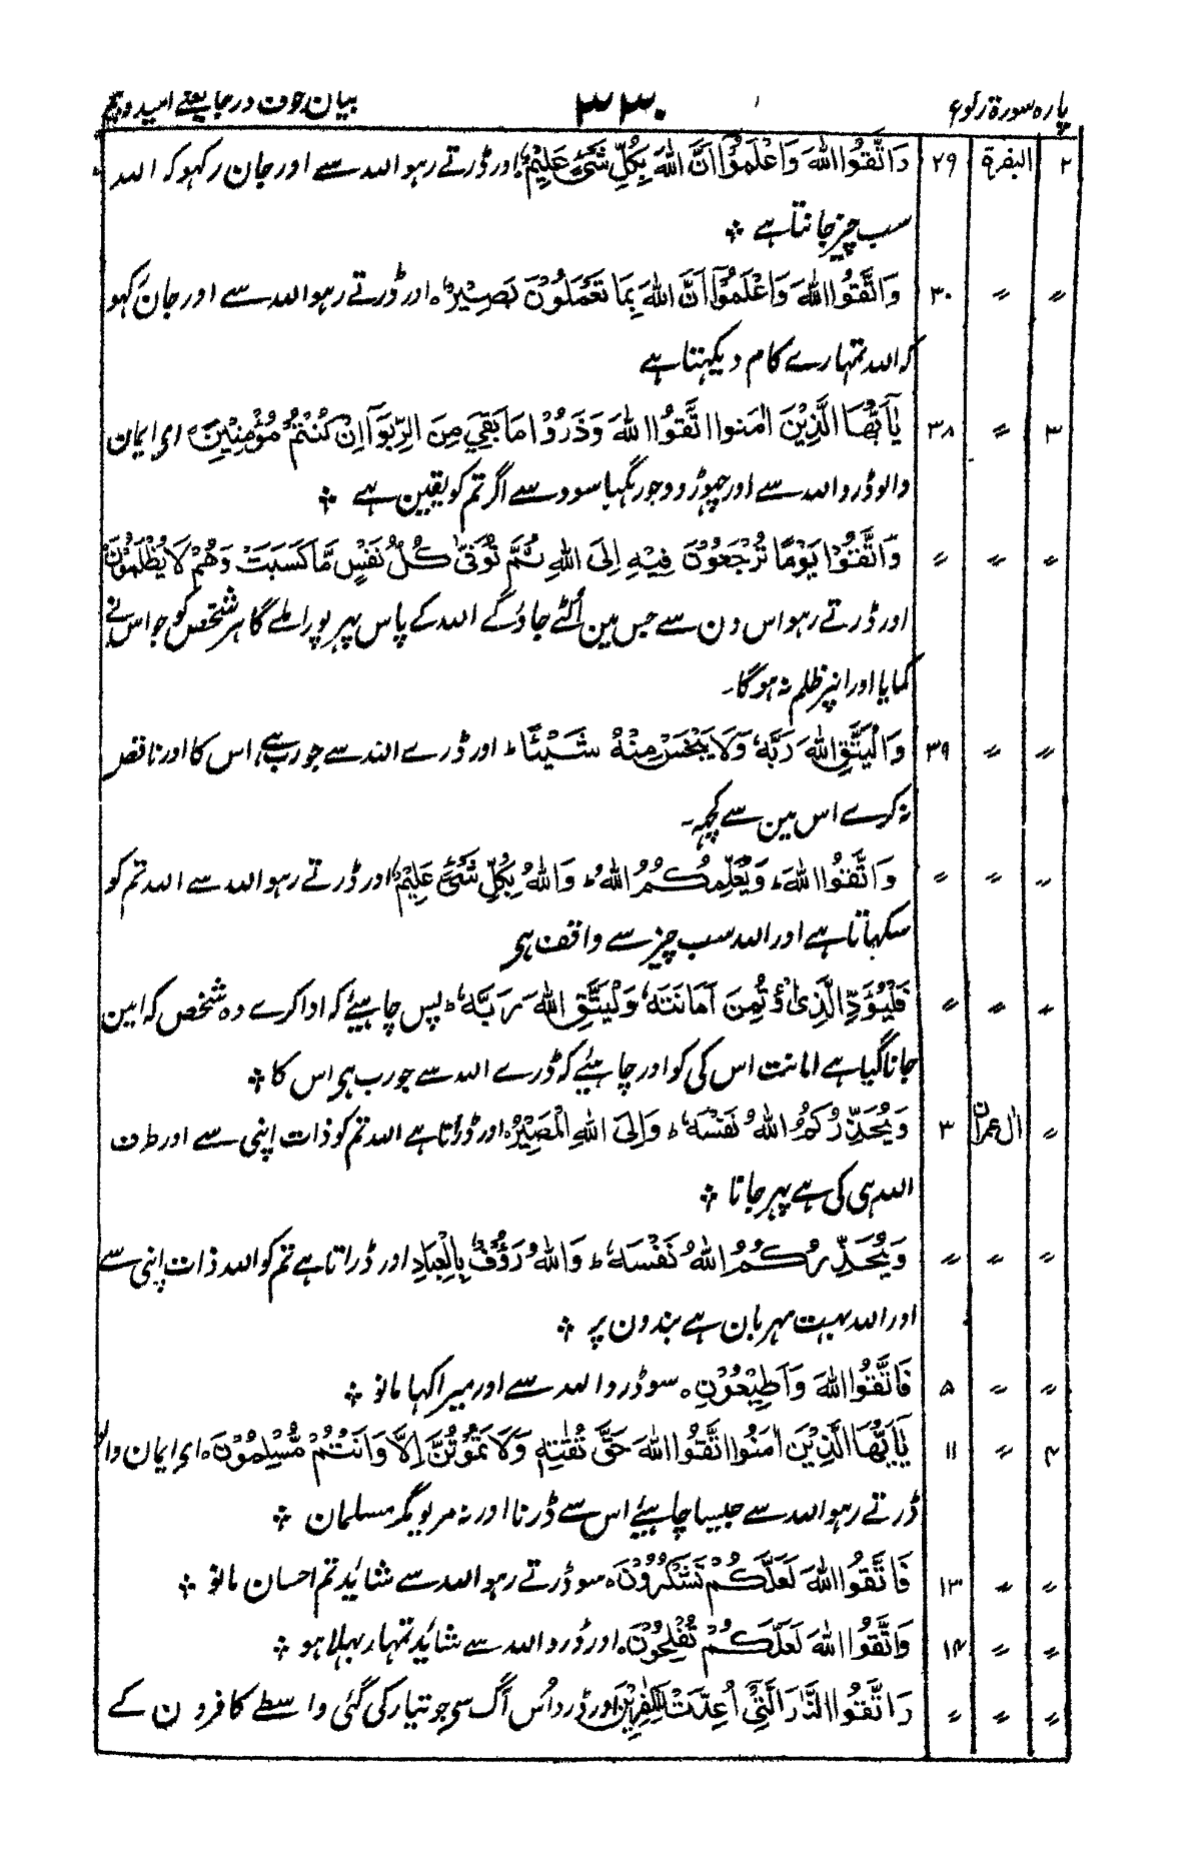 پارہ سورۃ رکوع ۳۳۰ بیان خوف و رجا یعنے امید و بیم
۲ البقرۃ ۲۹ وَاتَّقُوا اللّٰهَ وَاعْلَمُوْٓا اَنَّ اللّٰهَ بِكُلِّ شَیْءٍ عَلِیْمٌ اور ڈرتے رہو اللہ سے اور جان رکہو کہ اللہ
سب چیز جانتا ہے ۞
〃 〃 ۳۰ وَاتَّقُوا اللّٰهَ وَاعْلَمُوْٓا اَنَّ اللّٰهَ بِمَا تَعْمَلُوْنَ بَصِیْرٌ ہ اور ڈرتے رہو اللہ سے اور جان رکہو
کہ اللہ تمہارے کام دیکہتا ہے
۳ 〃 ۳۸ یٰٓاَیُّهَا الَّذِیْنَ اٰمَنُوا اتَّقُوا اللّٰهَ وَذَرُوْا مَا بَقِیَ مِنَ الرِّبٰوٓا اِنْ كُنْتُمْ مُّؤْمِنِیْنَ ہ ای ایمان
والو ڈرو اللہ سے اور چہوڑ دو جو رہگیا سود سے اگر تم کو یقین ہے ۞
〃 〃 〃 وَاتَّقُوْا یَوْمًا تُرْجَعُوْنَ فِیْهِ اِلَی اللّٰهِ ثُمَّ تُوَفّٰی كُلُّ نَفْسٍ مَّا كَسَبَتْ وَهُمْ لَا یُظْلَمُوْنَ
اور ڈرتے رہو اس دن سے جس مین اُلٹے جاؤ گے اللہ کے پاس پہر پورا ملے گا ہر شخص کو جو اس نے
کمایا اور انپر ظلم نہ ہو گا۔
〃 〃 ۳۹ وَالْیَتَّقِ اللّٰهَ رَبَّهٗ وَلَا یَبْخَسْ مِنْهُ شَیْئًا ط اور ڈرے اللہ سے جو رب ہے اس کا اور ناقص
نہ کرے اس مین سے کچہہ۔
〃 〃 〃 وَاتَّقُوا اللّٰهَ ط وَیُعَلِّمُكُمُ اللّٰهُ ط وَاللّٰهُ بِكُلِّ شَیْءٍ عَلِیْمٌ اور ڈرتے رہو اللہ سے اللہ تم کو
سکہاتا ہے اور اللہ سب چیز سے واقف ہی
〃 〃 〃 فَلْیُؤَدِّ الَّذِی اؤْتُمِنَ اَمَانَتَهٗ وَلْیَتَّقِ اللّٰهَ رَبَّهٗ ط پس چاہیئے کہ ادا کرے وہ شخص کہ امین
جانا گیا ہے امانت اس کی کو اور چاہیئے کہ ڈرے اللہ سے جو رب ہی اس کا ۞
〃 اٰل عمران ۳ وَیُحَذِّرُكُمُ اللّٰهُ نَفْسَهٗ ط وَاِلَی اللّٰهِ الْمَصِیْرُ ہ اور ڈراتا ہے اللہ تم کو ذات اپنی سے اور طرف
اللہ ہی کی ہے پہر جانا ۞
〃 〃 〃 وَیُحَذِّرُكُمُ اللّٰهُ نَفْسَهٗ ط وَاللّٰهُ رَؤُفٌۢ بِالْعِبَادِ اور ڈراتا ہے تم کو اللہ ذات اپنی سے
اور اللہ بہت مہربان ہے بندون پر ۞
〃 〃 ۵ فَاتَّقُوا اللّٰهَ وَاَطِیْعُوْنِ ہ سو ڈرو اللہ سے اور میرا کہا مانو ۞
۴ 〃 ۱۱ یٰٓاَیُّهَا الَّذِیْنَ اٰمَنُوا اتَّقُوا اللّٰهَ حَقَّ تُقٰتِهٖ وَلَا تَمُوْتُنَّ اِلَّا وَاَنْتُمْ مُّسْلِمُوْنَ ہ ای ایمان والو
ڈرتے رہو اللہ سے جیسا چاہیئے اس سے ڈرنا اور نہ مریو مگر مسلمان ۞
〃 〃 ۱۳ فَاتَّقُوا اللّٰهَ لَعَلَّكُمْ تَشْكُرُوْنَ ہ سو ڈرتے رہو اللہ سے شائید تم احسان مانو ۞
〃 〃 ۱۴ وَاتَّقُوا اللّٰهَ لَعَلَّكُمْ تُفْلِحُوْنَ ہ اور ڈرو اللہ سے شائید تمہارا بہلا ہو ۞
〃 〃 〃 وَاتَّقُوا النَّارَ الَّتِیْٓ اُعِدَّتْ لِلْكٰفِرِیْنَ اور ڈرو اُس آگ سی جو تیار کی گئی واسطے کافرون کے